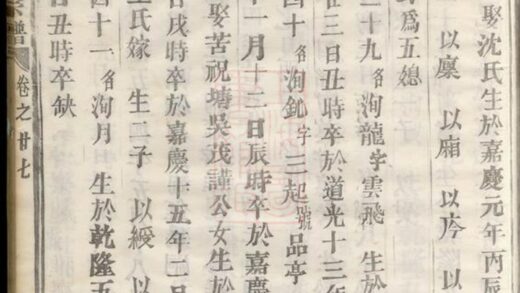 娶沈氏生於嘉慶元年丙辰
以廩 以廂 以庈 以
爲五媳
三十九名洵龍字雲飛 生於
在三日丑時卒於道光十三年
四十名洵釚字三起號品亭
十一月十三日辰時卒於嘉慶
娶苦祝塘吳茂謹公女生於
日戌時卒於嘉慶十五年二月
王氏嫁 生二子 以綬 以
四十一名洵月 生於乾隆五
日丑時卒缺
譜 卷之廿七